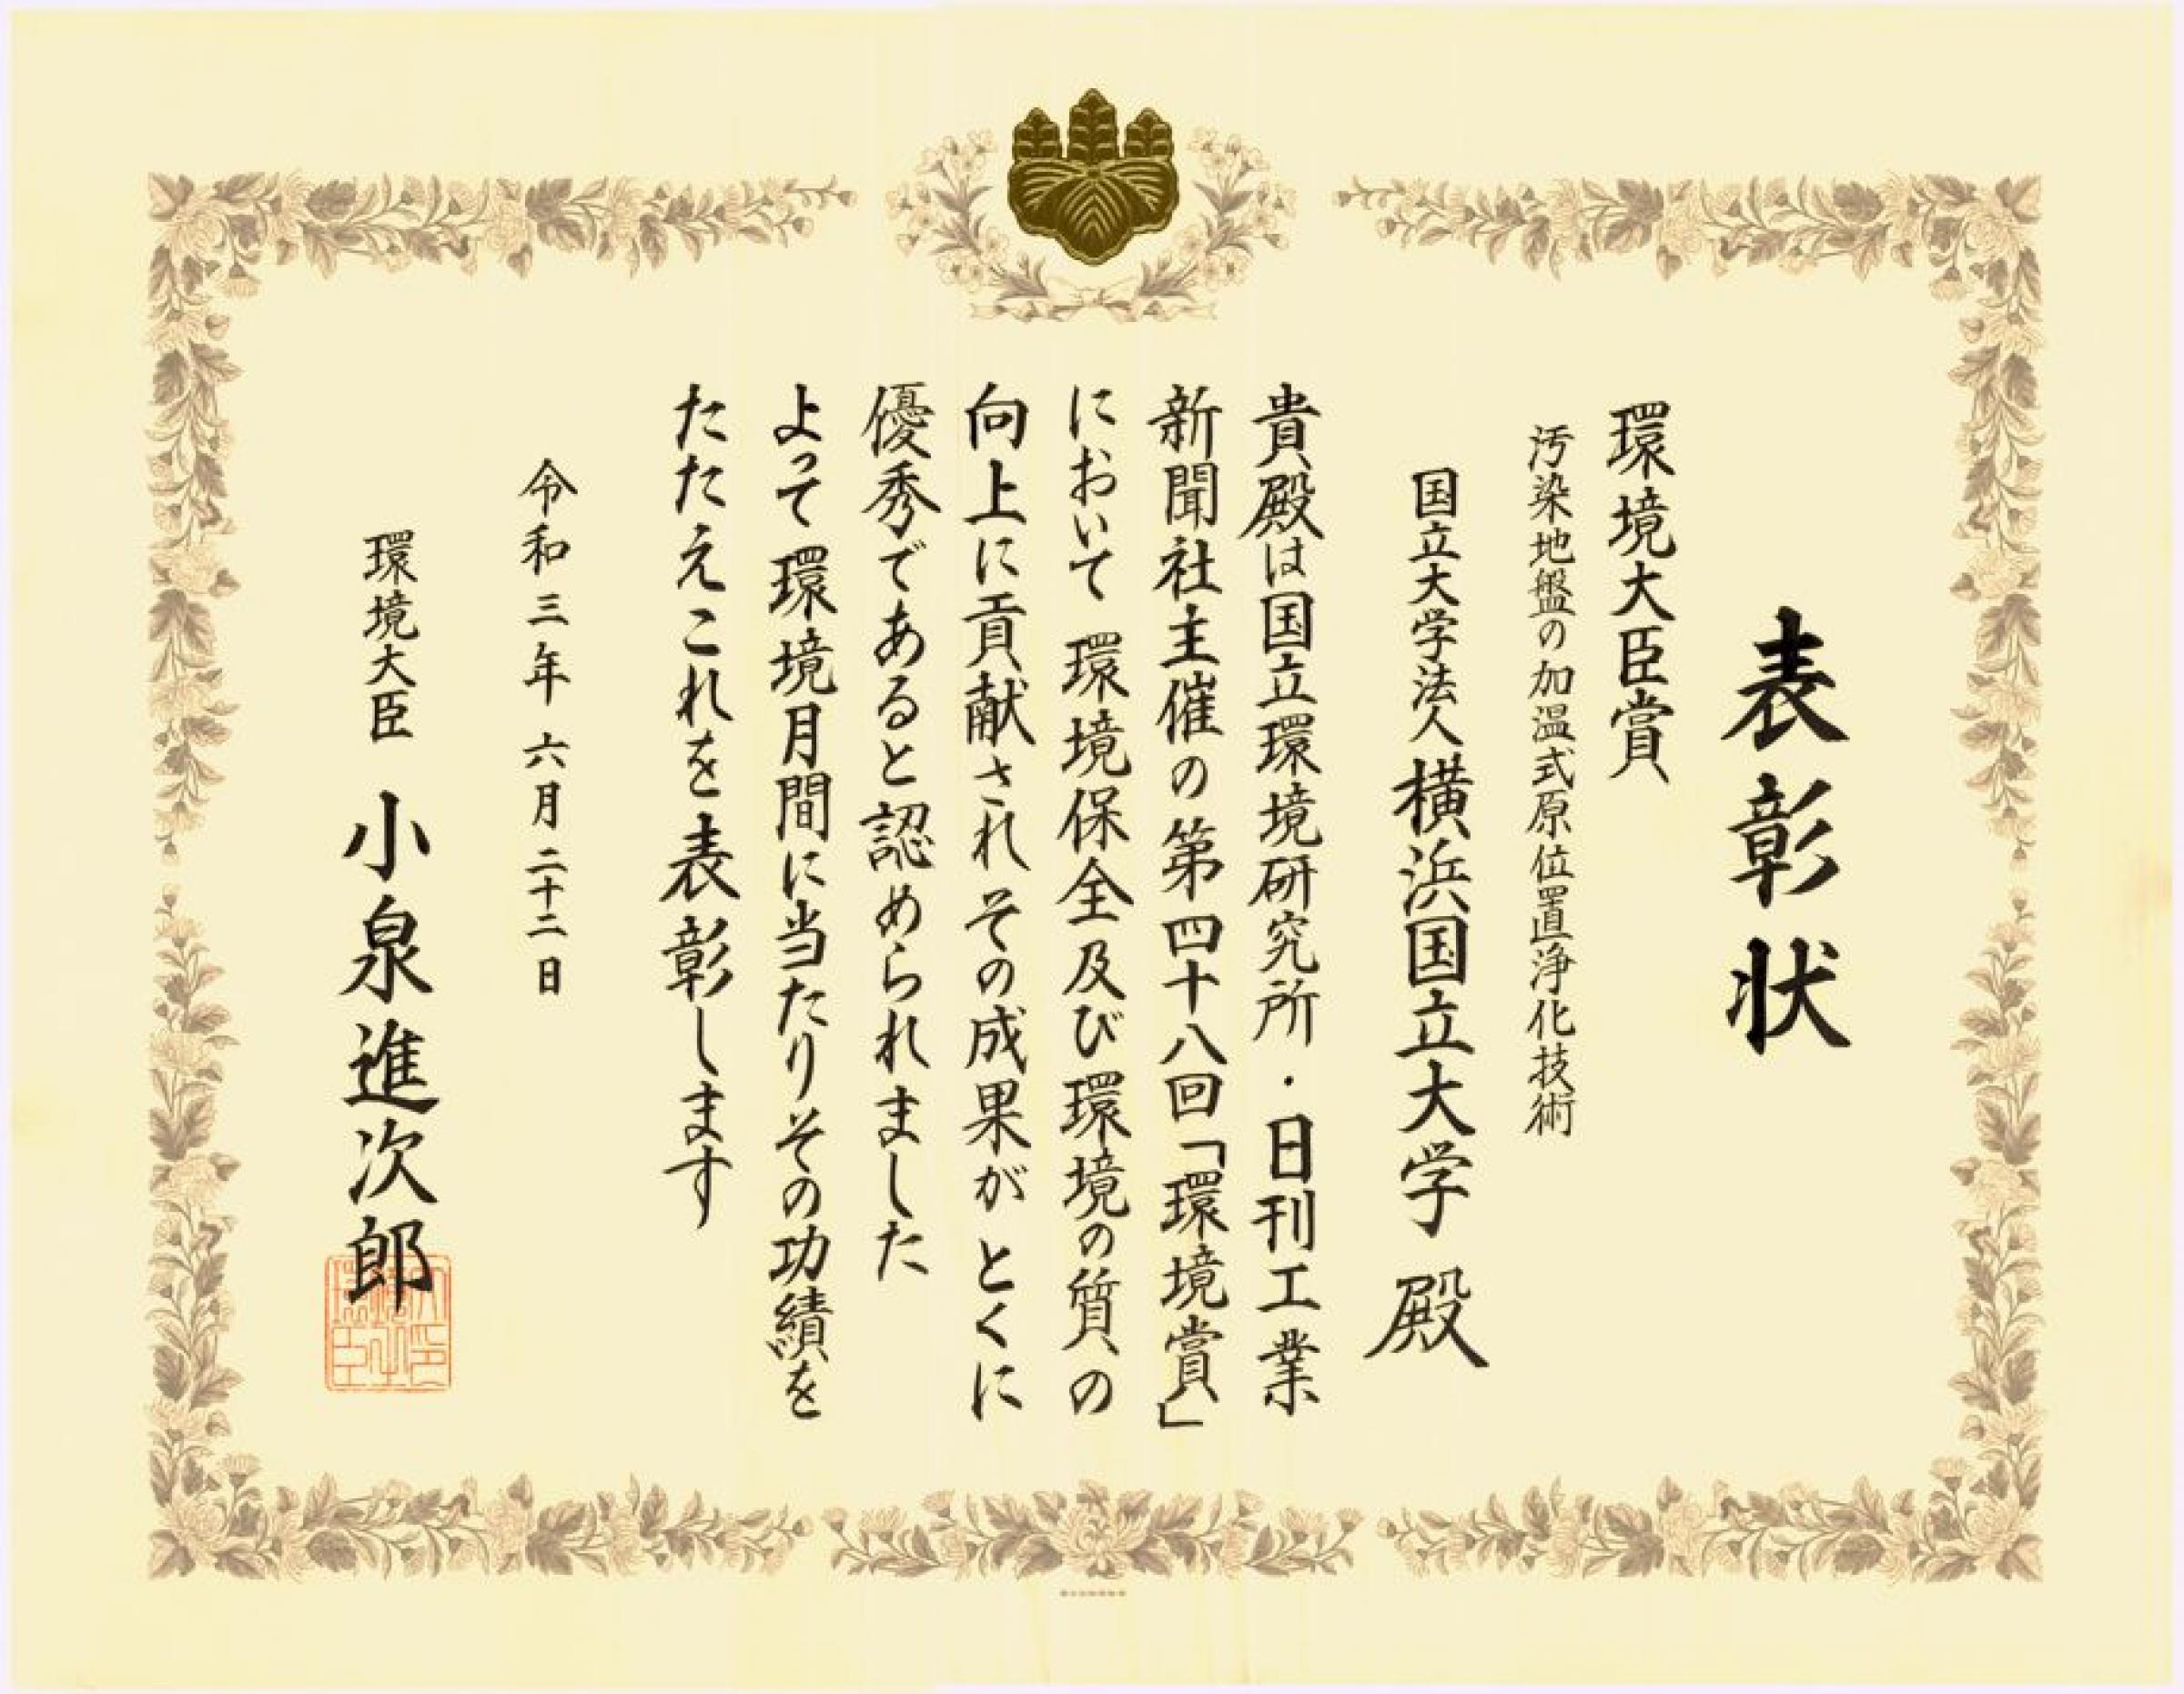 表彰状
環境大臣賞
汚染地盤の加温式原位置浄化技術
国立大学法人横浜国立大学 殿
貴殿は国立環境研究所・日刊工業
新聞社主催の第四十八回「環境賞」
において環境保全及び環境の質の
向上に貢献されその成果がとくに
優秀であると認められました
よって環境月間に当たりその功績を
たたえこれを表彰します
令和三年六月二十二日
環境大臣 小泉進次郎